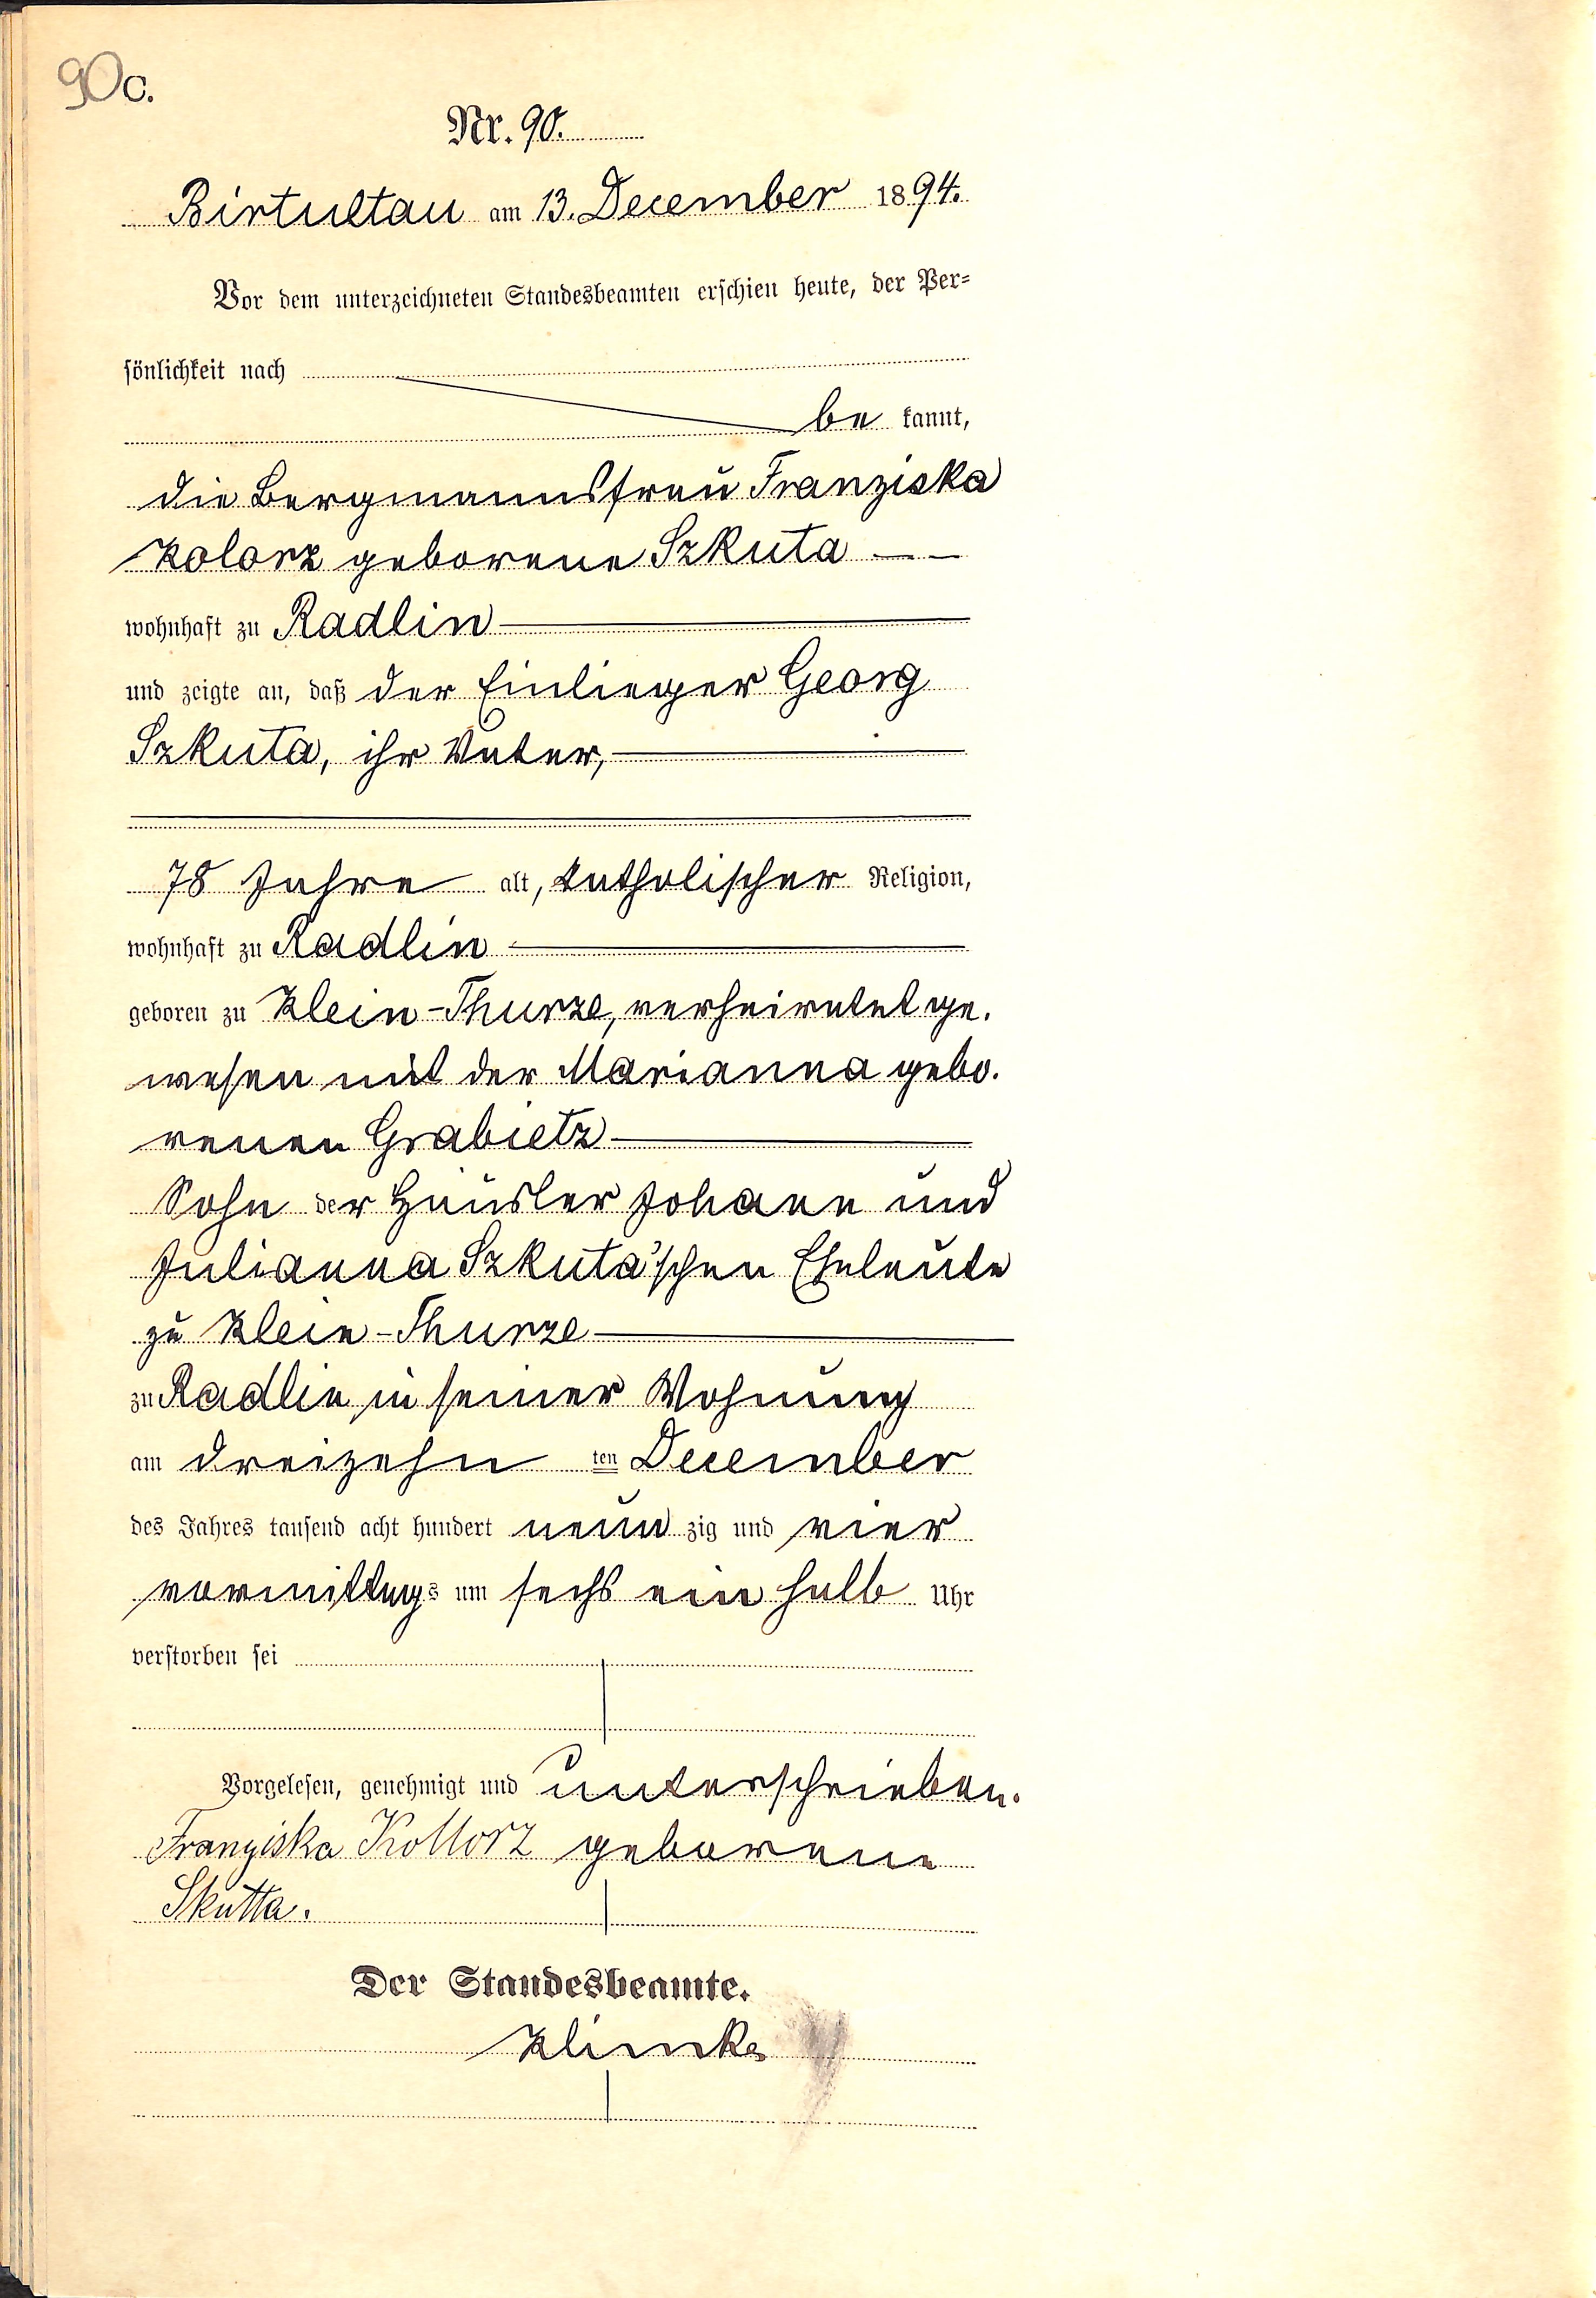 90c.
Nr. 90.
Birtultau am 13. December 1894.
Vor dem unterzeichneten Standesbeamten erschien heute, der Per=
sönlichkeit nach
be kannt,
die Bergmannsfrau Franziska
Kolorz geborene Szkuta
wohnhaft zu Radlin
und zeigte an, daß der Einlieger Georg
Szkuta, ihr Vater,
78 Jahre alt, katholischer Religion,
wohnhaft zu Radlin
geboren zu Klein-Thurze, verheiratet ge.
wesen mit der Marianna gebo.
renen Grabietz
Sohn der Häusler Johann und
Julianna Szkuta'schen Eheleute
zu Klein-Thurze
zu Radlin in seiner Wohnung
am dreizehn ten December
des Jahres tausend acht hundert neun zig und vier
vormittags um sechs ein halb Uhr
verstorben sei
Vorgelesen, genehmigt und unterschrieben.
Franziska Kollorz geborene
Skutta.
Der Standesbeamte.
Klimke